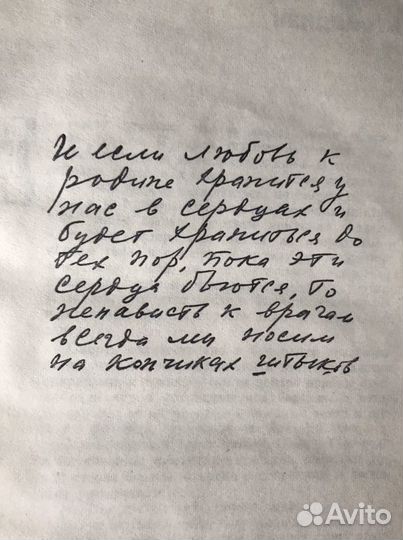 И если любовь к
родине хранится у
нас в сердцах и
будет храниться до
тех пор, пока эти
сердца бьются, то
ненависть к врагам
всегда мы носим
на кончиках штыков
Avito